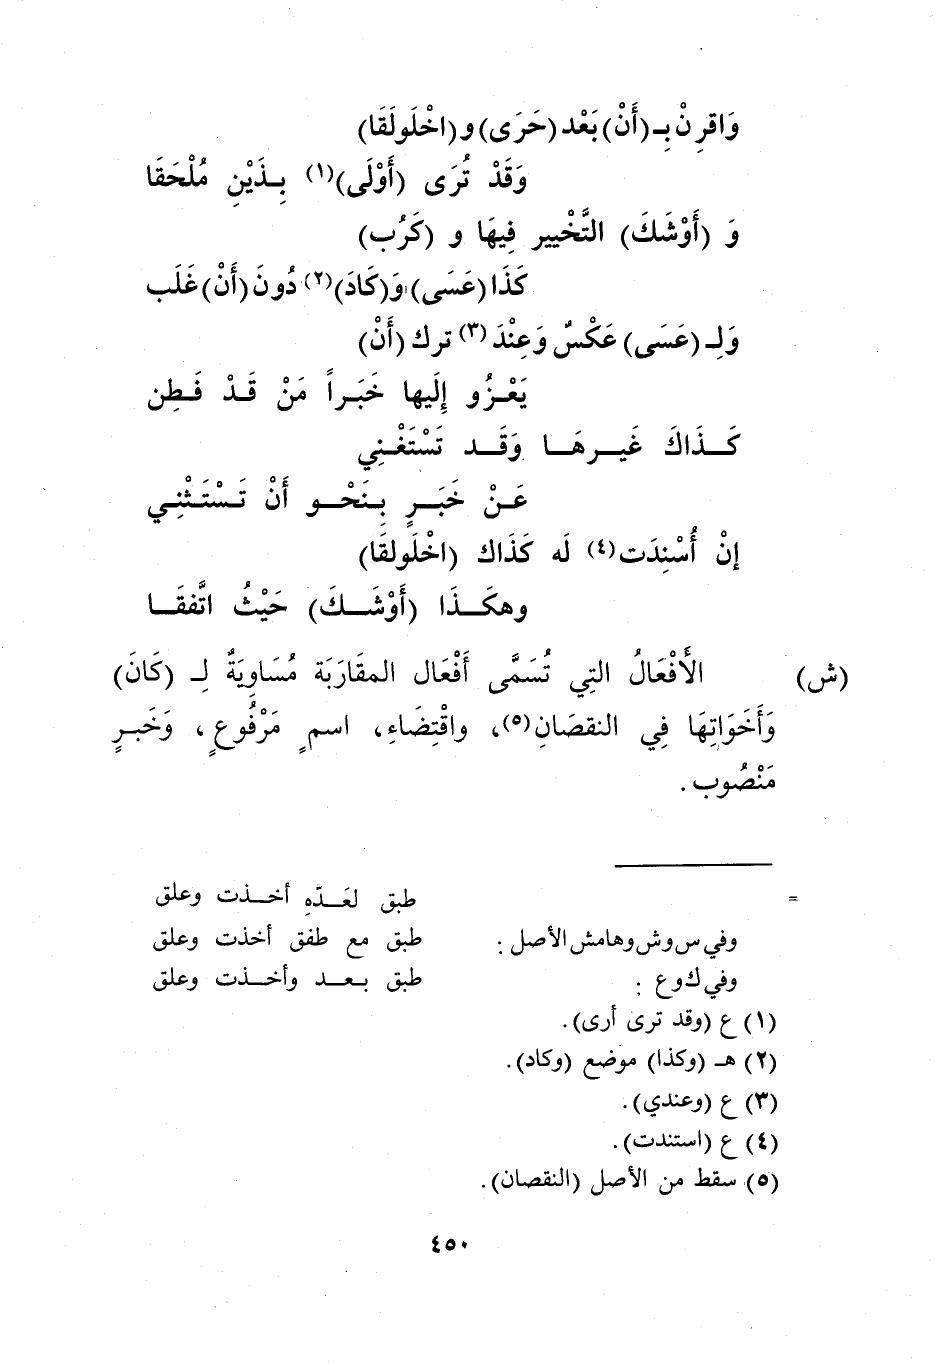 وَاقرِنْ بِـ(أَنْ) بَعْد (حَرَى) و (اخْلَولَقَا)
وَقَدْ تُرَى (أَوْلَى)(١) بِـذَيْنِ مُلْحَقَا
وَ (أَوْشَكَ) التَّخْيير فِيهَا و (كَرُب)
كَذَا (عَسَى) وَ(كَادَ)(٢) دُونَ (أَنْ) غَلَب
وَلِـ (عَسَى) عَكْسٌ وَعِنْدَ(٣) ترك (أَنْ)
يَعْـزُو إِلَيها خَبَـراً مَنْ قَـدْ فَـطِن
كَـذَاكَ غَيـرهَـا وَقَـد تَسْتَغْـنِي
عَـنْ خَبَـرٍ بِـنَحْـو أَنْ تَـسْتَـثْنِـي
إِنْ أُسْنِدَت(٤) لَه كَذَاك (اخْلَولقَا)
وهكَـذَا (أَوْشَـكَ) حَيْثُ اتَّفقَـا
(ش) الأَفْعَالُ التِي تُسَمَّى أَفْعَال المقَارَبَة مُسَاوِيَةٌ لِـ (كَانَ)
وَأَخَوَاتِهَا فِي النقصَانِ(٥)، واقْتِضَاءِ، اسمٍ مَرْفُوعٍ، وَخَبرٍ
مَنْصُوب.
= طبق لعَـدّهِ أخـذت وعلق
وفي س وش وهامش الأصل : طبق مع طفق أخذت وعلق
وفي ك وع : طبق بـعـد وأخـذت وعلق
(١) ع (وقد ترى أرى).
(٢) هـ (وكذا) موضع (وكاد).
(٣) ع (وعندي).
(٤) ع (استندت).
(٥) سقط من الأصل (النقصان).
٤٥٠